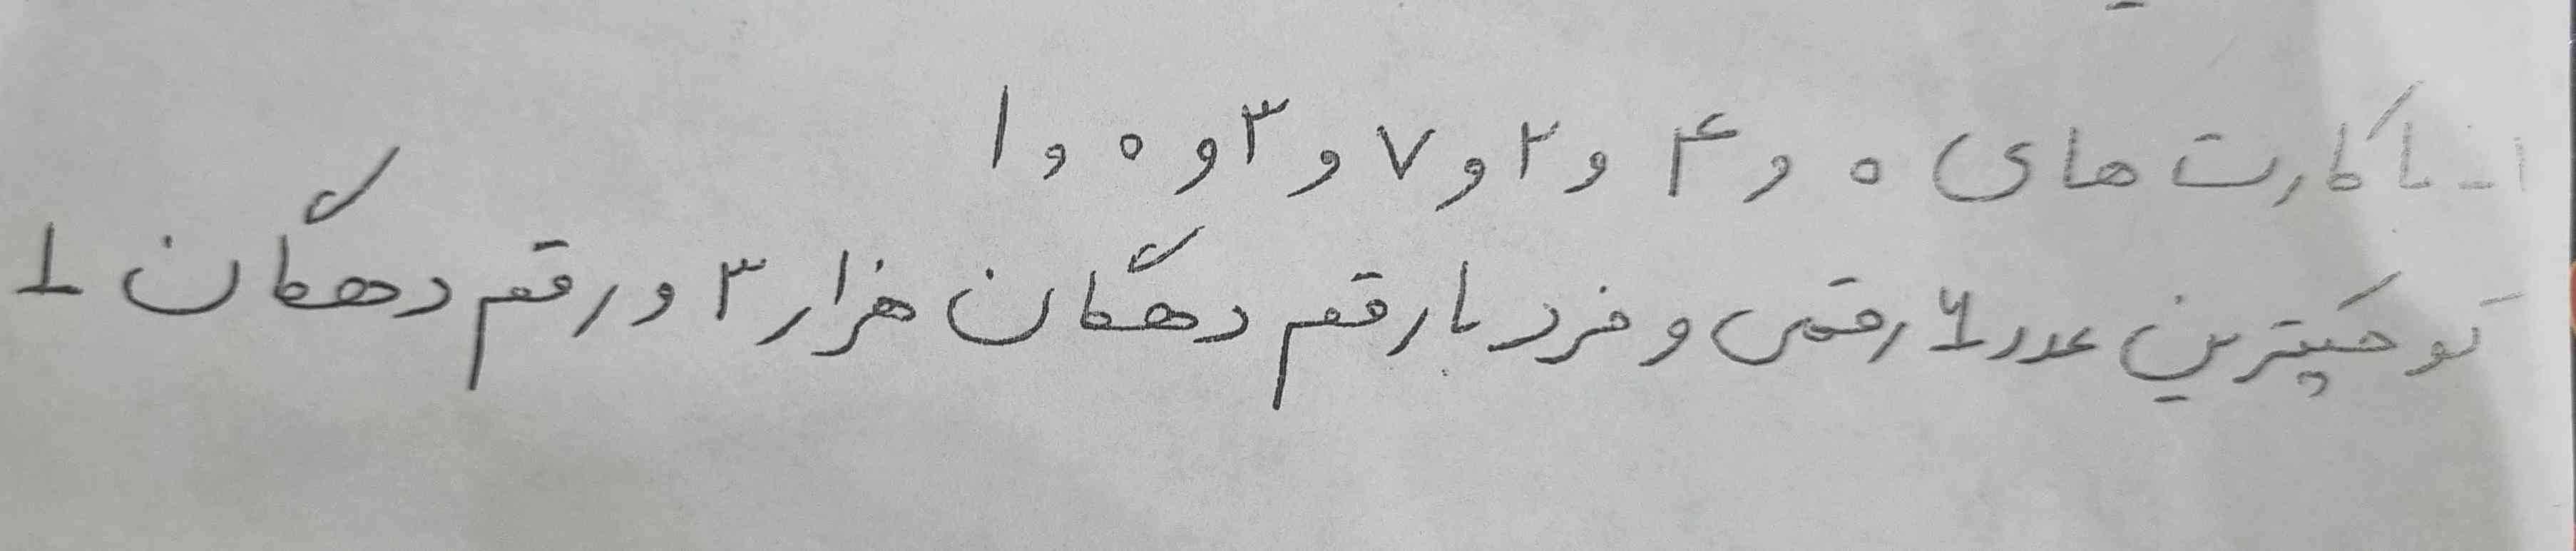 ۱- با کارت های ۰ و ۴ و ۲ و ۷ و ۳ و ۰ و ۱
کوچکترین عدد ۶ رقمی و فرد با رقم دهگان هزار ۳ و رقم دهگان ۱